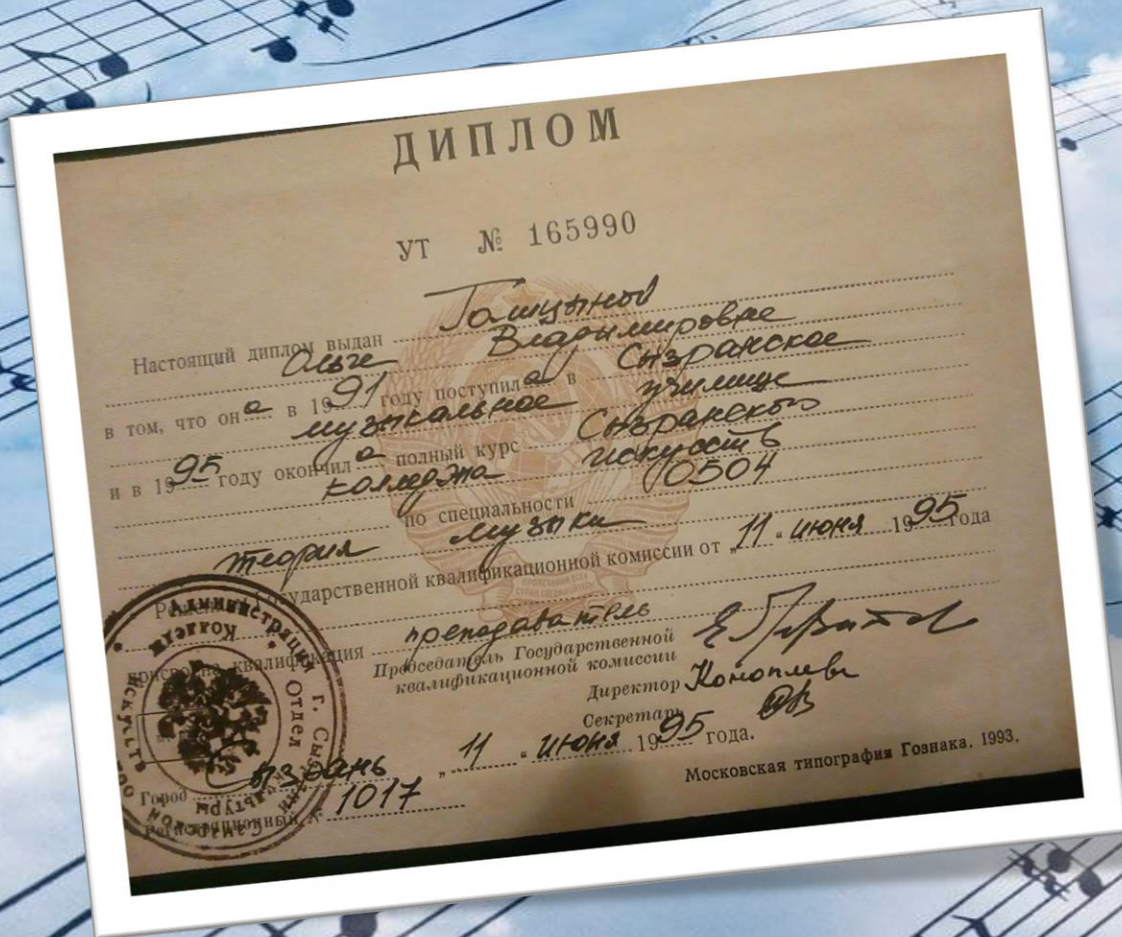 ДИПЛОМ
УТ № 165990
Настоящий диплом выдан
Ольге Владимировне
в том, что она в 1991 году поступила в Сызранское
музыкальное училище
и в 1995 году окончила полный курс Сызранского
колледжа искусств
по специальности 0504
теория музыки
Государственной квалификационной комиссии от „11“ июня 1995 года
присвоена квалификация преподаватель
Председатель Государственной
квалификационной комиссии
Директор
Секретарь
„11“ июня 1995 года.
Город Сызрань
Регистрационный № 1017
Московская типография Гознака. 1993.
Администрация г. Сызрани
Отдел культуры